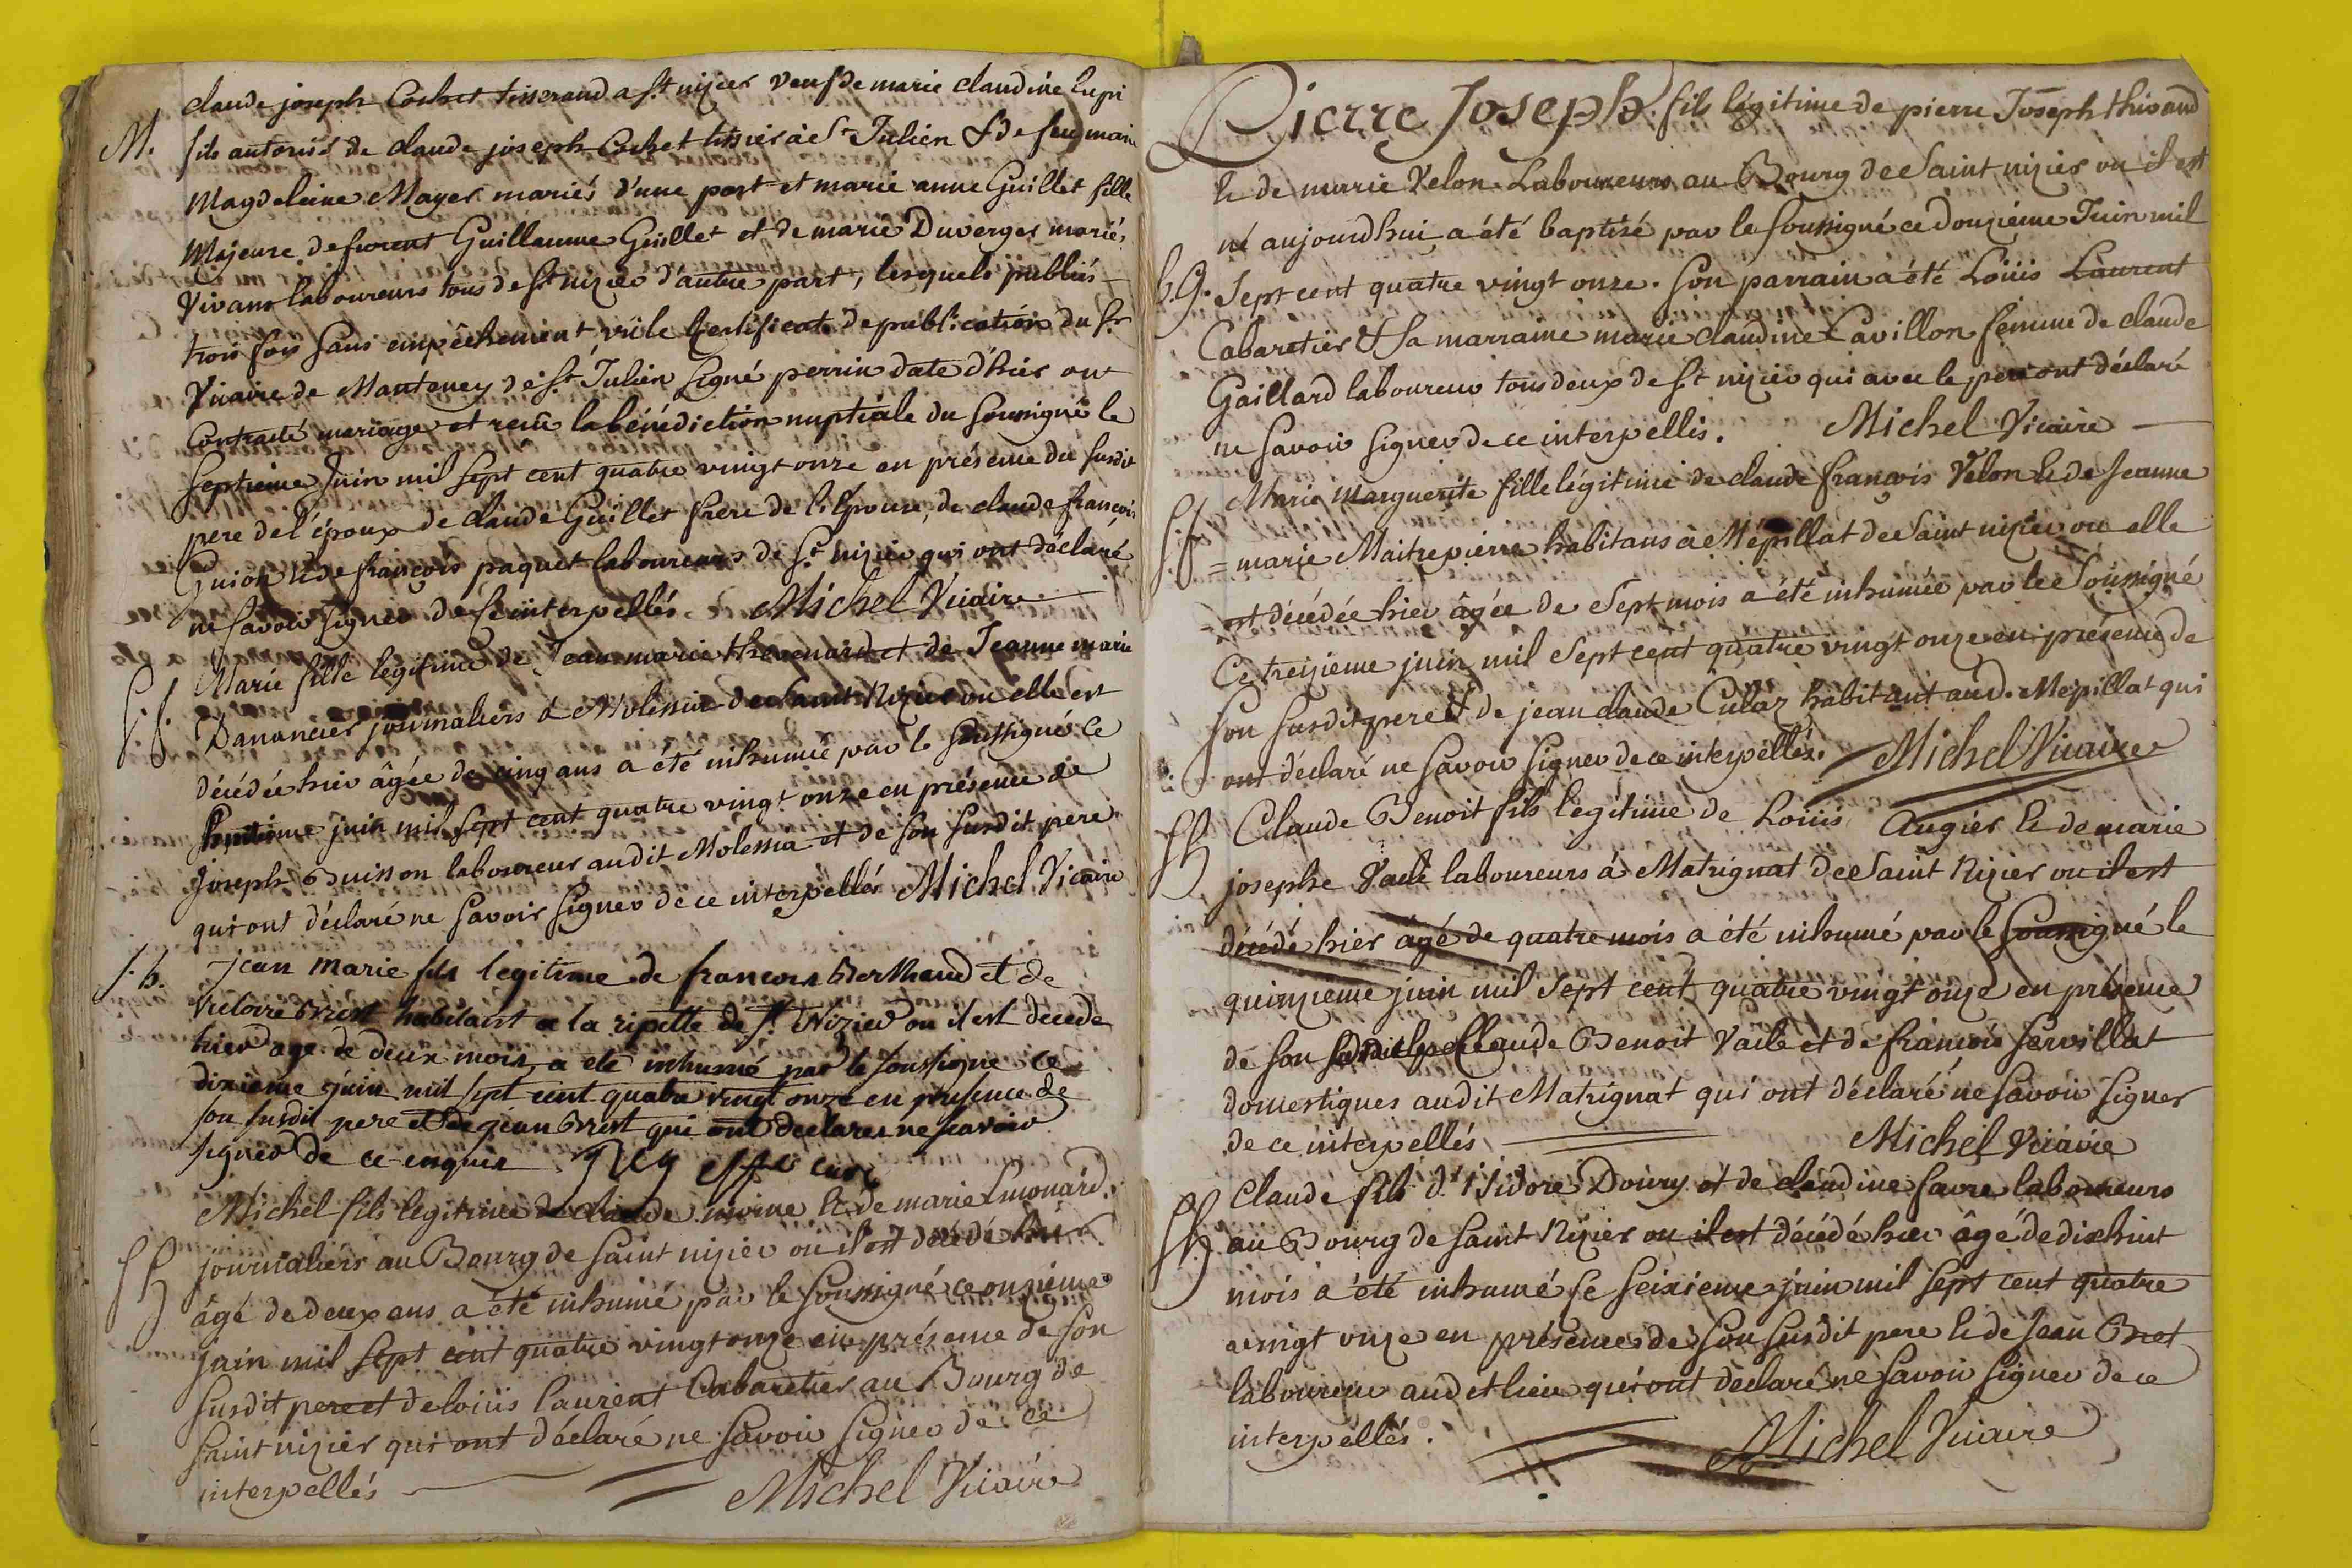 claude joseph Cochet tisserand a St nizier veuf de marie claudine
M. fils autorisé de claude joseph Cochet tissier à St Julien & de feu marie
Magdeleine Mayer mariés d'une part et marie anne Guillet fille
Majeure de furent Guillaume Guillet et de marie Duverger mariés,
vivans laboureurs tous de St nizier d'autre part, lesquels publiés
trois fois sans empêchement vû le Certificat de publication du Sr
Vicaire de Manteney de St Julien signé perrin date d'hier ont
Contracté mariage et reçû la bénédiction nuptiale du soussigné le
septieme Juin mil sept cent quatre vingt onze en présence du susdit
pere de l'époux de claude Guillet frere de l'Epouse, de claude françois
Guion & de françois paquet laboureurs de St nizier qui ont déclaré
ne savoir signer de ce interpellés. Michel Vicaire
Marie fille legitime de Jean marie thevenard et de Jeanne marie
Danancier journaliers à Molessia de Saint Nizier ou elle est
décédée hier âgée de cinq ans a été inhumée par le soussigné ce
huitieme juin mil sept cent quatre vingt onze en présence de
joseph Buisson laboureur audit Molessia et de son susdit pere
qui ont déclaré ne savoir signer de ce interpellés Michel Vicaire
S.b. jean marie fils legitime de francois Berthaud et de
victoire Brest habitant a la ripette de St Nizier ou il est decede
hier age de deux mois, a ete inhumé par le soussigne ce
dixieme juin mil sept cent quatre vingt onze en presence de
son susdit pere et de jean Brest qui ont declares ne scavoir
signer de ce enquis curé
Michel fils legitime de claude moine & de marie Limonard
journaliers au Bourg de Saint nizier ou il est décédé hier
âgé de deux ans a été inhumé par le soussigné ce onzieme
juin mil sept cent quatre vingt onze en présence de son
susdit pere et de loüis laurent Cabaretier au Bourg de
Saint nizier qui ont déclaré ne savoir signer de ce
interpellés Michel Vicaire
Pierre Joseph fils légitime de pierre Joseph thivand
& de marie Velon Laboureurs au Bourg de Saint nizier ou il est
né aujourdhui a été baptisé par le soussigné ce douzième Juin mil
b.G. Sept cent quatre vingt onze. Son parrain a été Loüis Laurent
Cabaretier & Sa marraine marie claudine Cavillon femme de claude
Gaillard laboureur tous deux de St nizier qui avec le pere ont déclaré
ne savoir signer de ce interpellés. Michel Vicaire
Marie Marguerite fille légitime de claude françois Velon & de Jeanne
= marie Maitrepierre habitans à Mépillat de Saint nizier ou elle
est décédée hier âgée de Sept mois a été inhumée par le Soussigné
Ce treizieme juin mil Sept cent quatre vingt onze en présence de
Son Susdit pere & de jean claude Culaz habitant aud. Mepillat qui
ont déclaré ne savoir signer de ce interpellés. Michel Vicaire
Claude Benoit fils legitime de Loüis Augier & de marie
josephe Vaile laboureurs à Matrignat de Saint Nizier ou il est
décédé hier âgé de quatre mois a été inhumé par le Soussigné le
quinzieme juin mil Sept cent quatre vingt onze en présence
de son Claude Benoit Vaile et de françois Servillat
domestiques audit Matrignat qui ont déclaré ne savoir signer
de ce interpellés Michel Vicaire
Claude fils d'isidore Doury et de claudine favre laboureurs
au Bourg de Saint Nizier ou il est décédé hier âgé de dix huit
mois a été inhumé le seizieme juin mil sept cent quatre
vingt onze en présence de son susdit pere & de Jean Bret
laboureur audit lieu qui ont déclaré ne savoir signer de ce
interpellés. Michel Vicaire